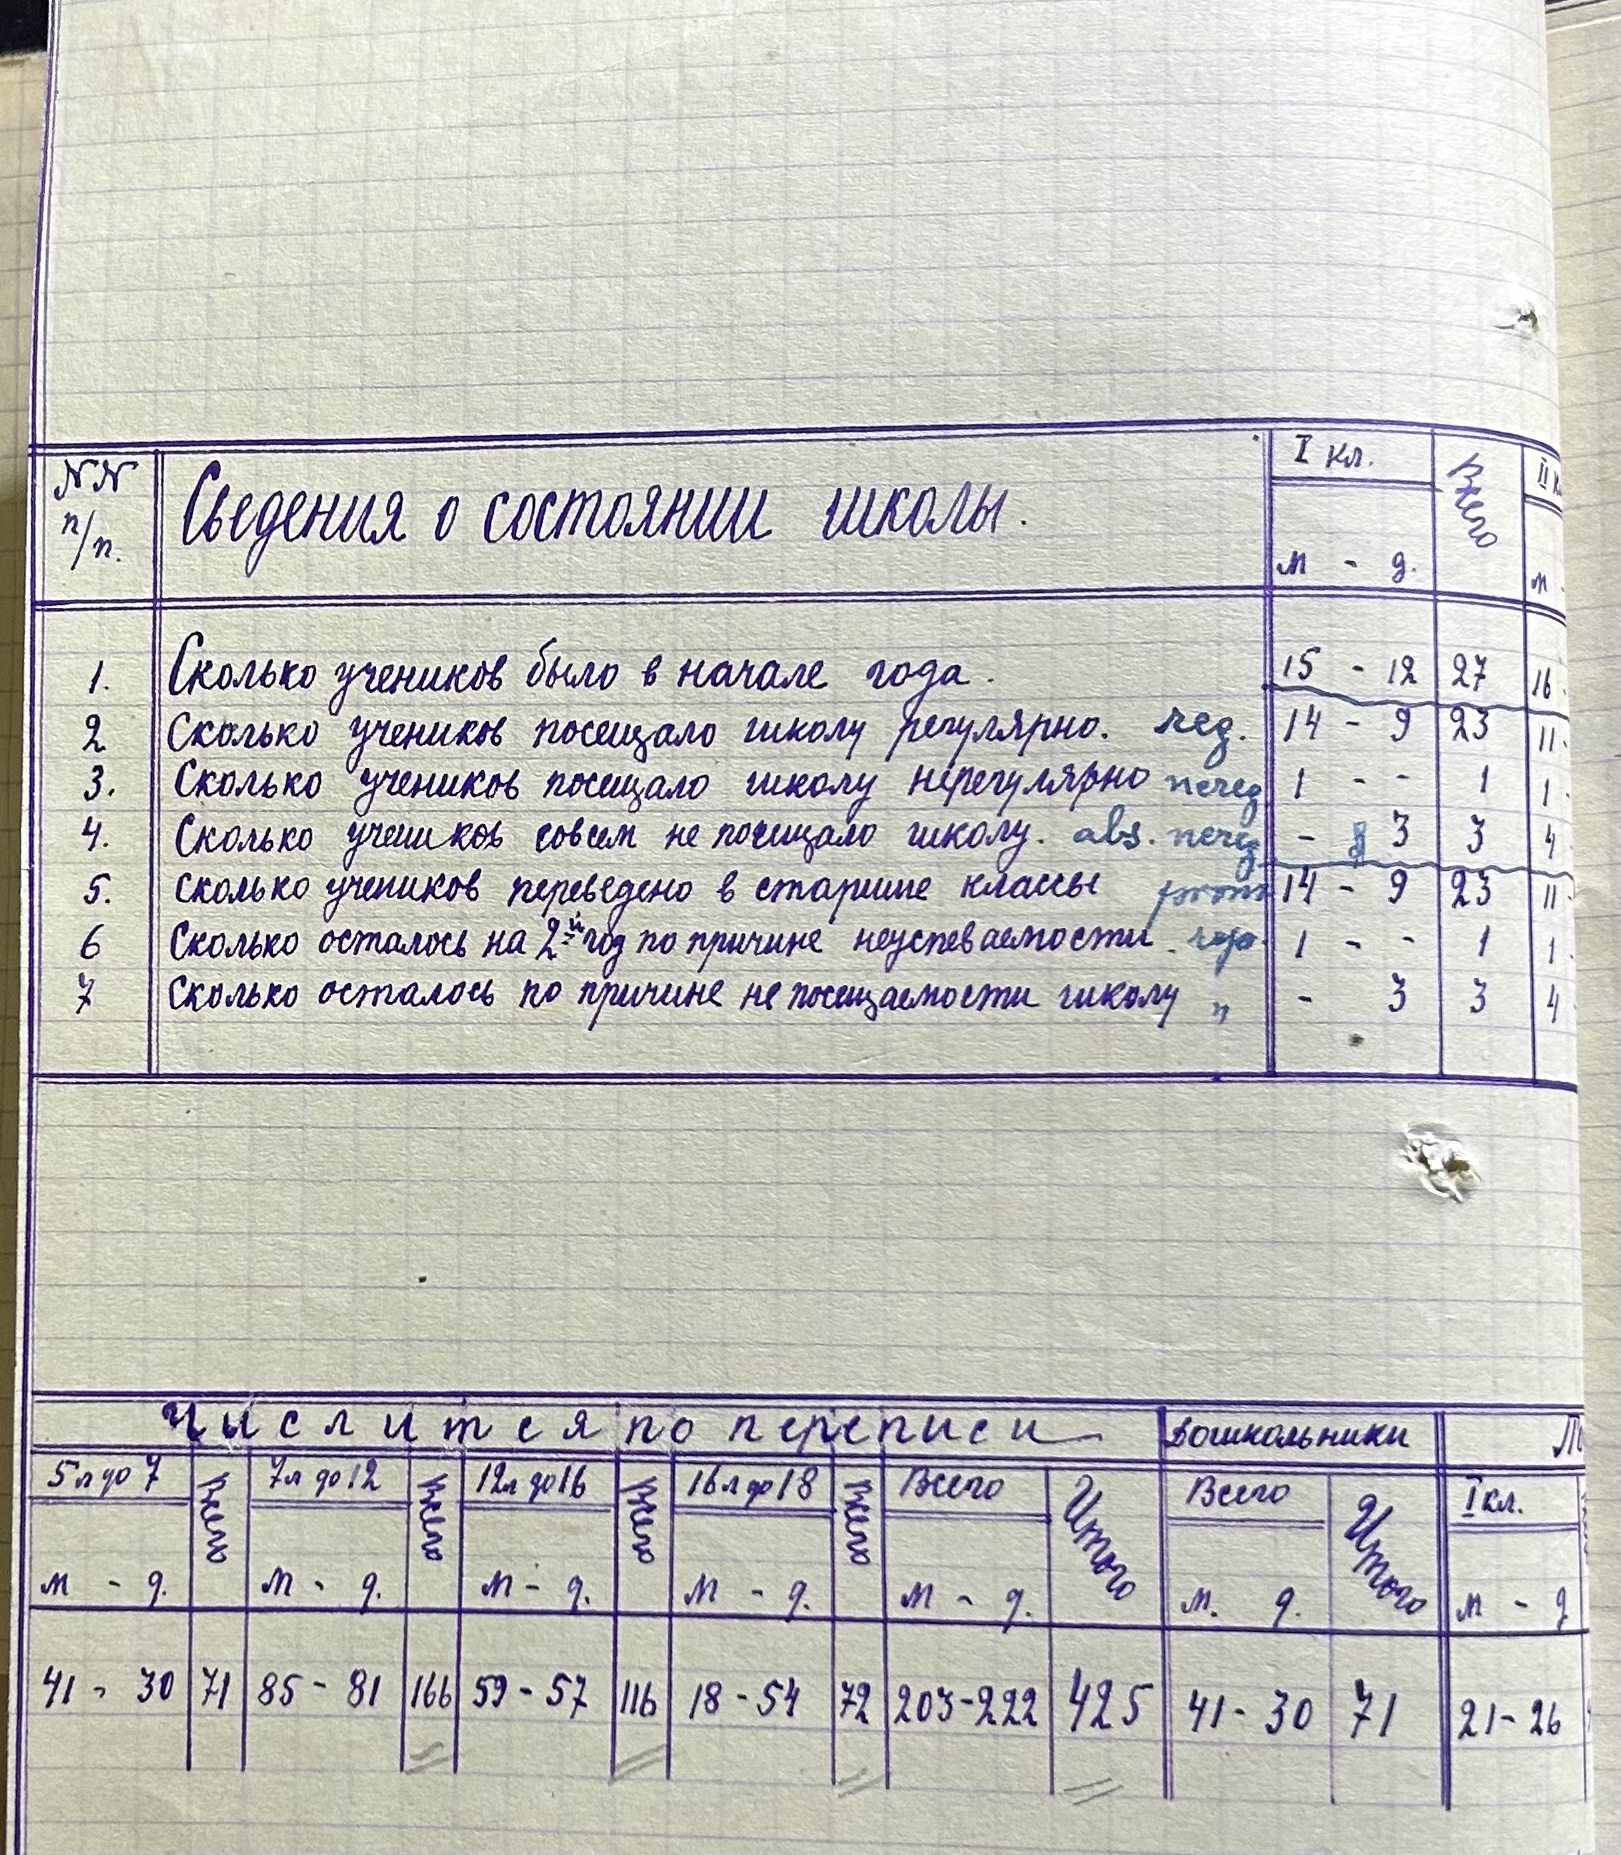 NN п/п. Сведения о состоянии школы. I кл. Всего II к
м - д. м -
1. Сколько учеников было в начале года. 15 - 12 27 16 -
2 Сколько учеников посещало школу регулярно. 14 - 9 23 11 -
3. Сколько учеников посещало школу нерегулярно 1 - - 1 1 -
4. Сколько учеников совсем не посещало школу. abs. - 3 3 4
5. Сколько учеников переведено в старшие классы 14 - 9 23 11 -
6 Сколько осталось на 2-й год по причине неуспеваемости. 1 - - 1 1 -
7 Сколько осталось по причине не посещаемости школу " - 3 3 4 -
Числится по переписи Дошкольники
5 л до 7 Всего 7 л до 12 Всего 12 л до 16 Всего 16 л до 18 Всего Всего Итого Всего Итого I кл.
м - д. м - д. м - д. м - д. м - д. м. д. м - д
41 - 30 71 85 - 81 166 59 - 57 116 18 - 54 72 203 - 222 425 41 - 30 71 21 - 26